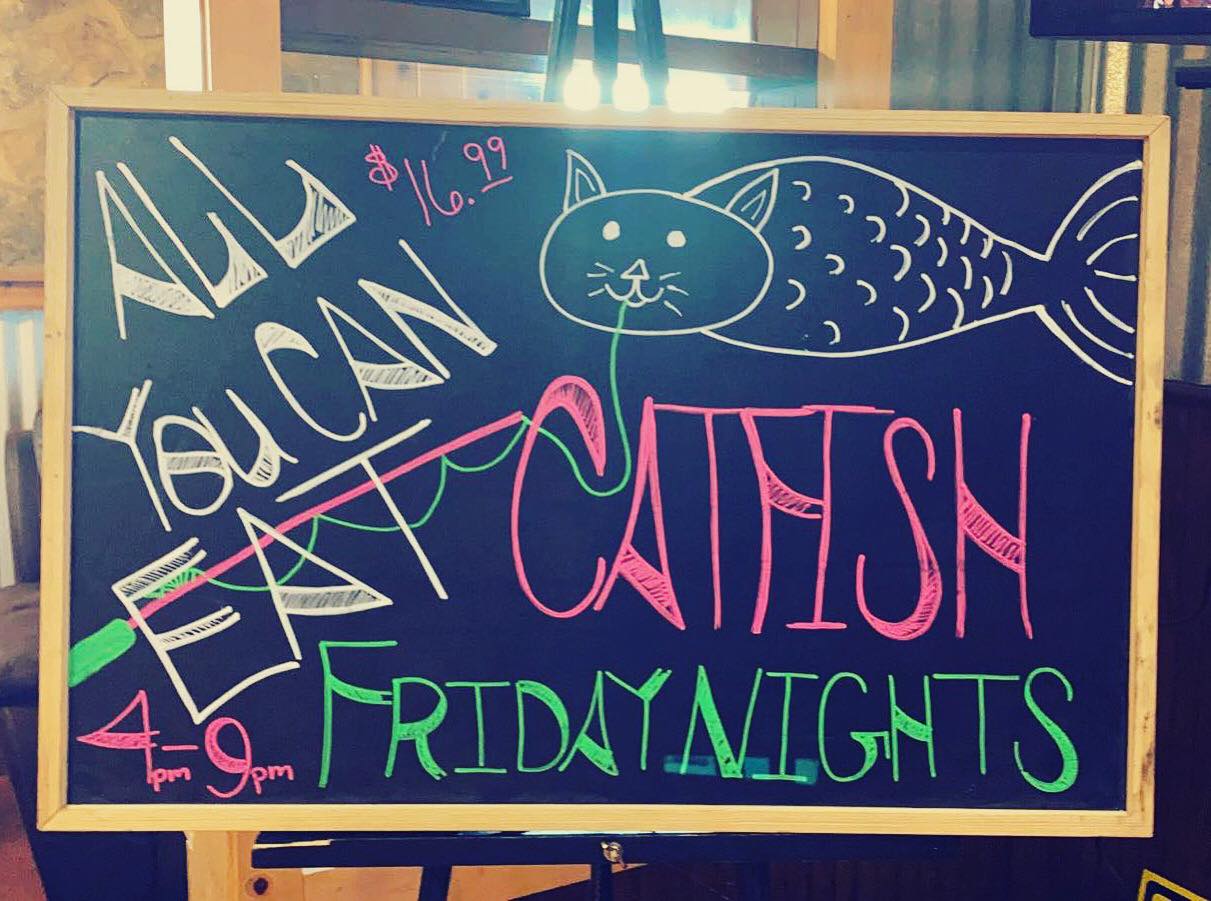 ALL
$16.99
YOU CAN
EAT
CATFISH
FRIDAY NIGHTS
4pm-9pm